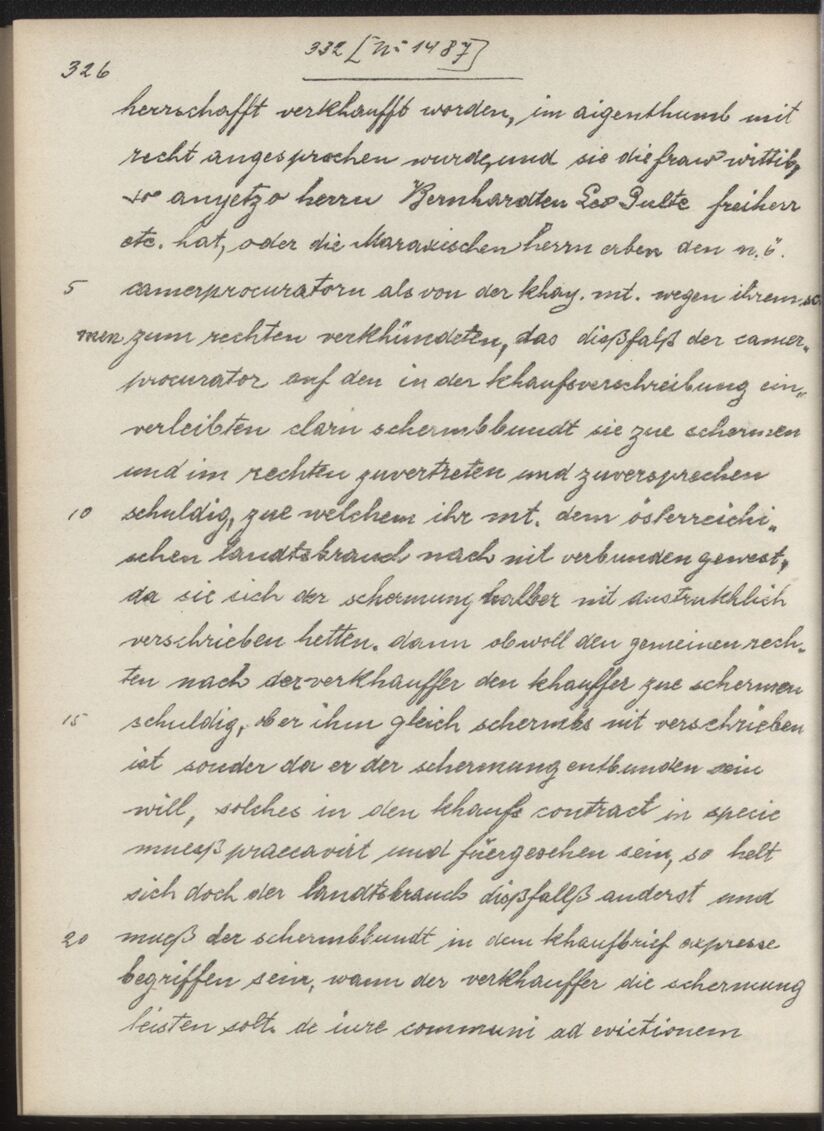 332 [N= 1487]
326
herrschafft verkhaufft worden, im aigenthumb mit
recht angesprochen wurde, und sie die fraw wittib,
so anyetzo herrn Bernhardten Leo Gulte freiherr
etc. hat, oder die Maraxischen herrn erben den n.ö.
5 camerprocuratorn als von der khay. mt. wegen ihrem sc
men zum rechten verkhündeten, das dißfalß der camer„
procurator auf den in der khaufsverschreibung ein„
verleibten clarn schermbbundt sie zue schermen
und im rechten zuvertreten und zuversprechen
10 schuldig, zue welchem ihr mt. dem österreichi„
schen landtsbrauch nach nit verbunden gewest,
da sie sich der schermung halber nit austrukhlich
verschrieben hetten. dann obwoll den gemeinen rech„
ten nach der verkhauffer den khauffer zue schermen
15 schuldig, ober ihm gleich schermbs nit verschrieben
ist sonder da er der schermung entbunden sein
will, solches in den khaufs contract in specie
mueß praecavirt und füergesehen sein, so helt
sich doch der landtsbrauch dißfallß anderst und
20 mueß der schermbbundt in dem khaufbrief expresse
begriffen sein, wann der verkhauffer die schermung
leisten solt. de iure communi ad evictionem